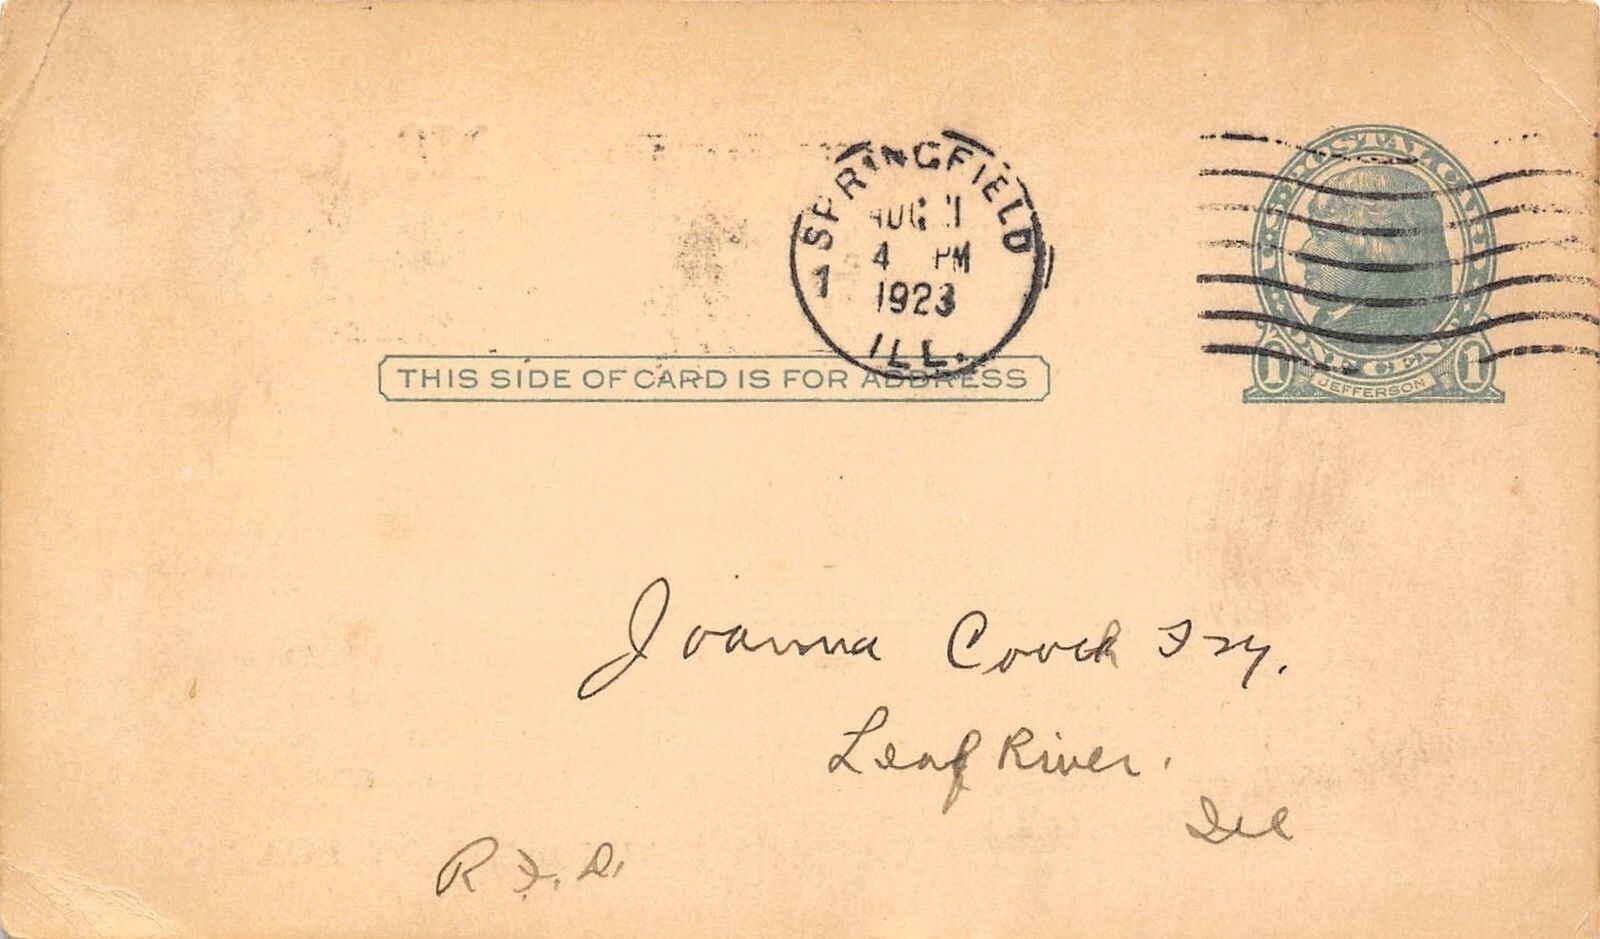 SPRINGFIELD
AUG
4 PM
1
1923
ILL.
U.S. POSTAL CARD
ONE CENT
1 1
JEFFERSON
THIS SIDE OF CARD IS FOR ADDRESS
Joanna Fry.
Leaf River.
Ill
R.F.D.